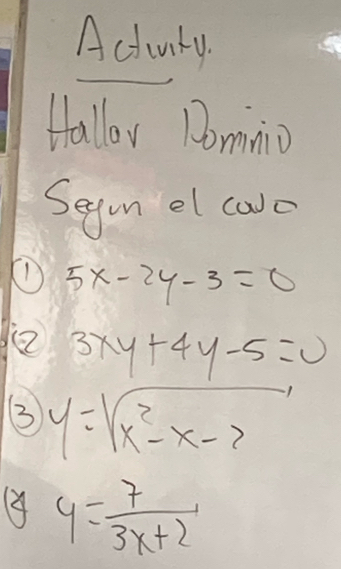 Activity.
Hallar Dominio
Segun el caso
① 5x-2y-3=0
② 3xy+4y-5=0
③ y=√(x²-x-2)
④ y=7/(3x+2)